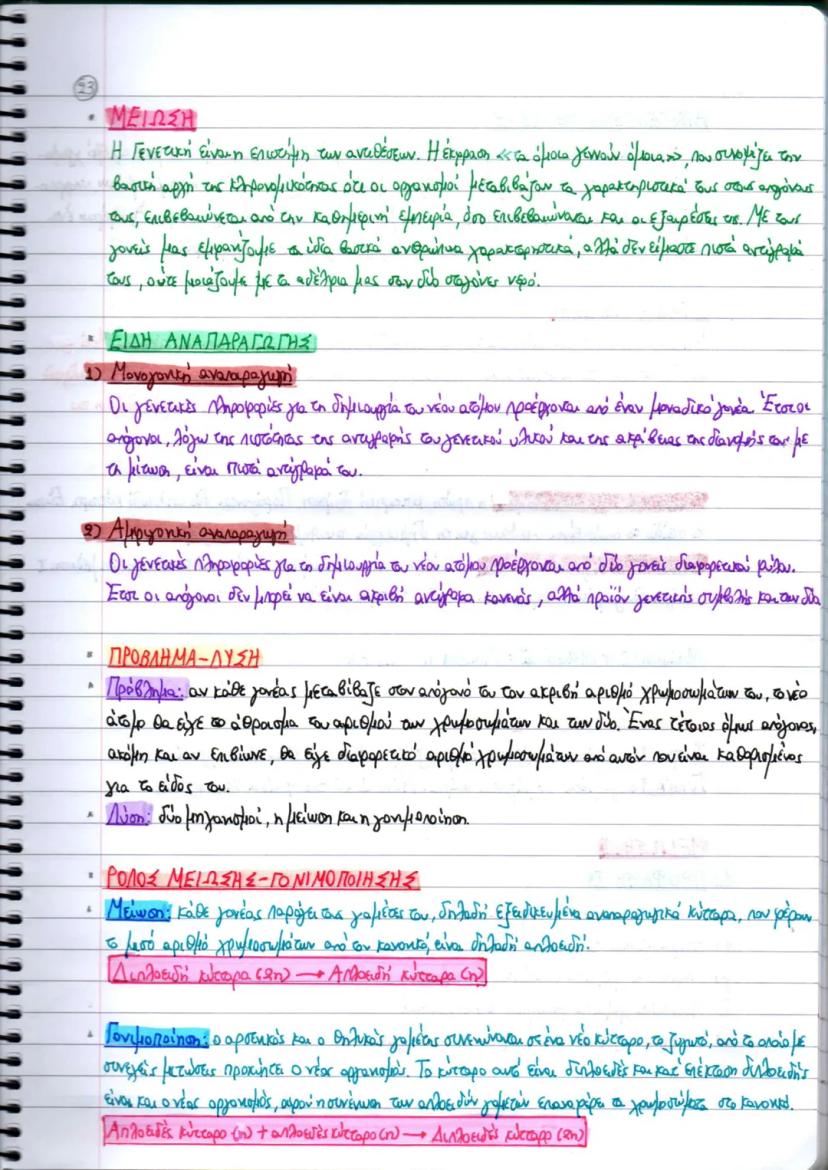 23
• ΜΕΙΩΣΗ
Η Γενετική είναι η επιστήμη των αντιθέσεων. Η έκφραση «τα όμοια γεννούν όμοια», που συνοψίζει την
βασική αρχή της κληρονομικότητας ότι οι οργανισμοί μεταβιβάζουν τα χαρακτηριστικά τους στους απογόνους
τους, επιβεβαιώνεται από την καθημερινή εμπειρία, όσο επιβεβαιώνονται και οι εξαιρέσεις της. Με τους
γονείς μας εμφανίζουμε τα ίδια βασικά ανθρώπινα χαρακτηριστικά, αλλά δεν είμαστε πιστά αντίγραφά
τους, ούτε μοιάζουμε με τα αδέλφια μας σαν δύο σταγόνες νερό.
• ΕΙΔΗ ΑΝΑΠΑΡΑΓΩΓΗΣ
1) Μονογονική αναπαραγωγή
Οι γενετικές πληροφορίες για τη δημιουργία του νέου ατόμου προέρχονται από έναν μοναδικό γονέα. Έτσι οι
απόγονοι, λόγω της πιστότητας της αντιγραφής του γενετικού υλικού και της ακρίβειας της διανομής του με
τη μίτωση, είναι πιστά αντίγραφά του.
2) Αμφιγονική αναπαραγωγή
Οι γενετικές πληροφορίες για τη δημιουργία του νέου ατόμου προέρχονται από δύο γονείς διαφορετικού φύλου.
Έτσι οι απόγονοι δεν μπορεί να είναι ακριβή αντίγραφα κανενός, αλλά προϊόν γενετικής συμβολής και των δύο
• ΠΡΟΒΛΗΜΑ-ΛΥΣΗ
• Πρόβλημα: αν κάθε γονέας μεταβίβαζε στον απόγονό του τον ακριβή αριθμό χρωμοσωμάτων του, το νέο
άτομο θα είχε το άθροισμα του αριθμού των χρωμοσωμάτων και των δύο. Ένας τέτοιος όμως απόγονος,
ακόμη και αν επιβίωνε, θα είχε διαφορετικό αριθμό χρωμοσωμάτων από αυτόν που είναι καθορισμένος
για το είδος του.
• Λύση: δύο μηχανισμοί, η μείωση και η γονιμοποίηση.
• ΡΟΛΟΣ ΜΕΙΩΣΗΣ-ΓΟΝΙΜΟΠΟΙΗΣΗΣ
• Μείωση: κάθε γονέας παράγει τους γαμέτες του, δηλαδή εξειδικευμένα αναπαραγωγικά κύτταρα, που φέρουν
το μισό αριθμό χρωμοσωμάτων από τον κανονικό, είναι δηλαδή απλοειδή.
Διπλοειδή κύτταρα (2n) → Απλοειδή κύτταρα (n)
• Γονιμοποίηση: ο αρσενικός και ο θηλυκός γαμέτης συνενώνονται σε ένα νέο κύτταρο, το ζυγωτό, από το οποίο με
συνεχείς μιτώσεις προκύπτει ο νέος οργανισμός. Το κύτταρο αυτό είναι διπλοειδές και κατ' επέκταση διπλοειδής
είναι και ο νέος οργανισμός, αφού η συνένωση των απλοειδών γαμετών επαναφέρει τα χρωμοσώματα στο κανονικό.
Απλοειδές κύτταρο (n) + απλοειδές κύτταρο (n) → Διπλοειδές κύτταρο (2n)